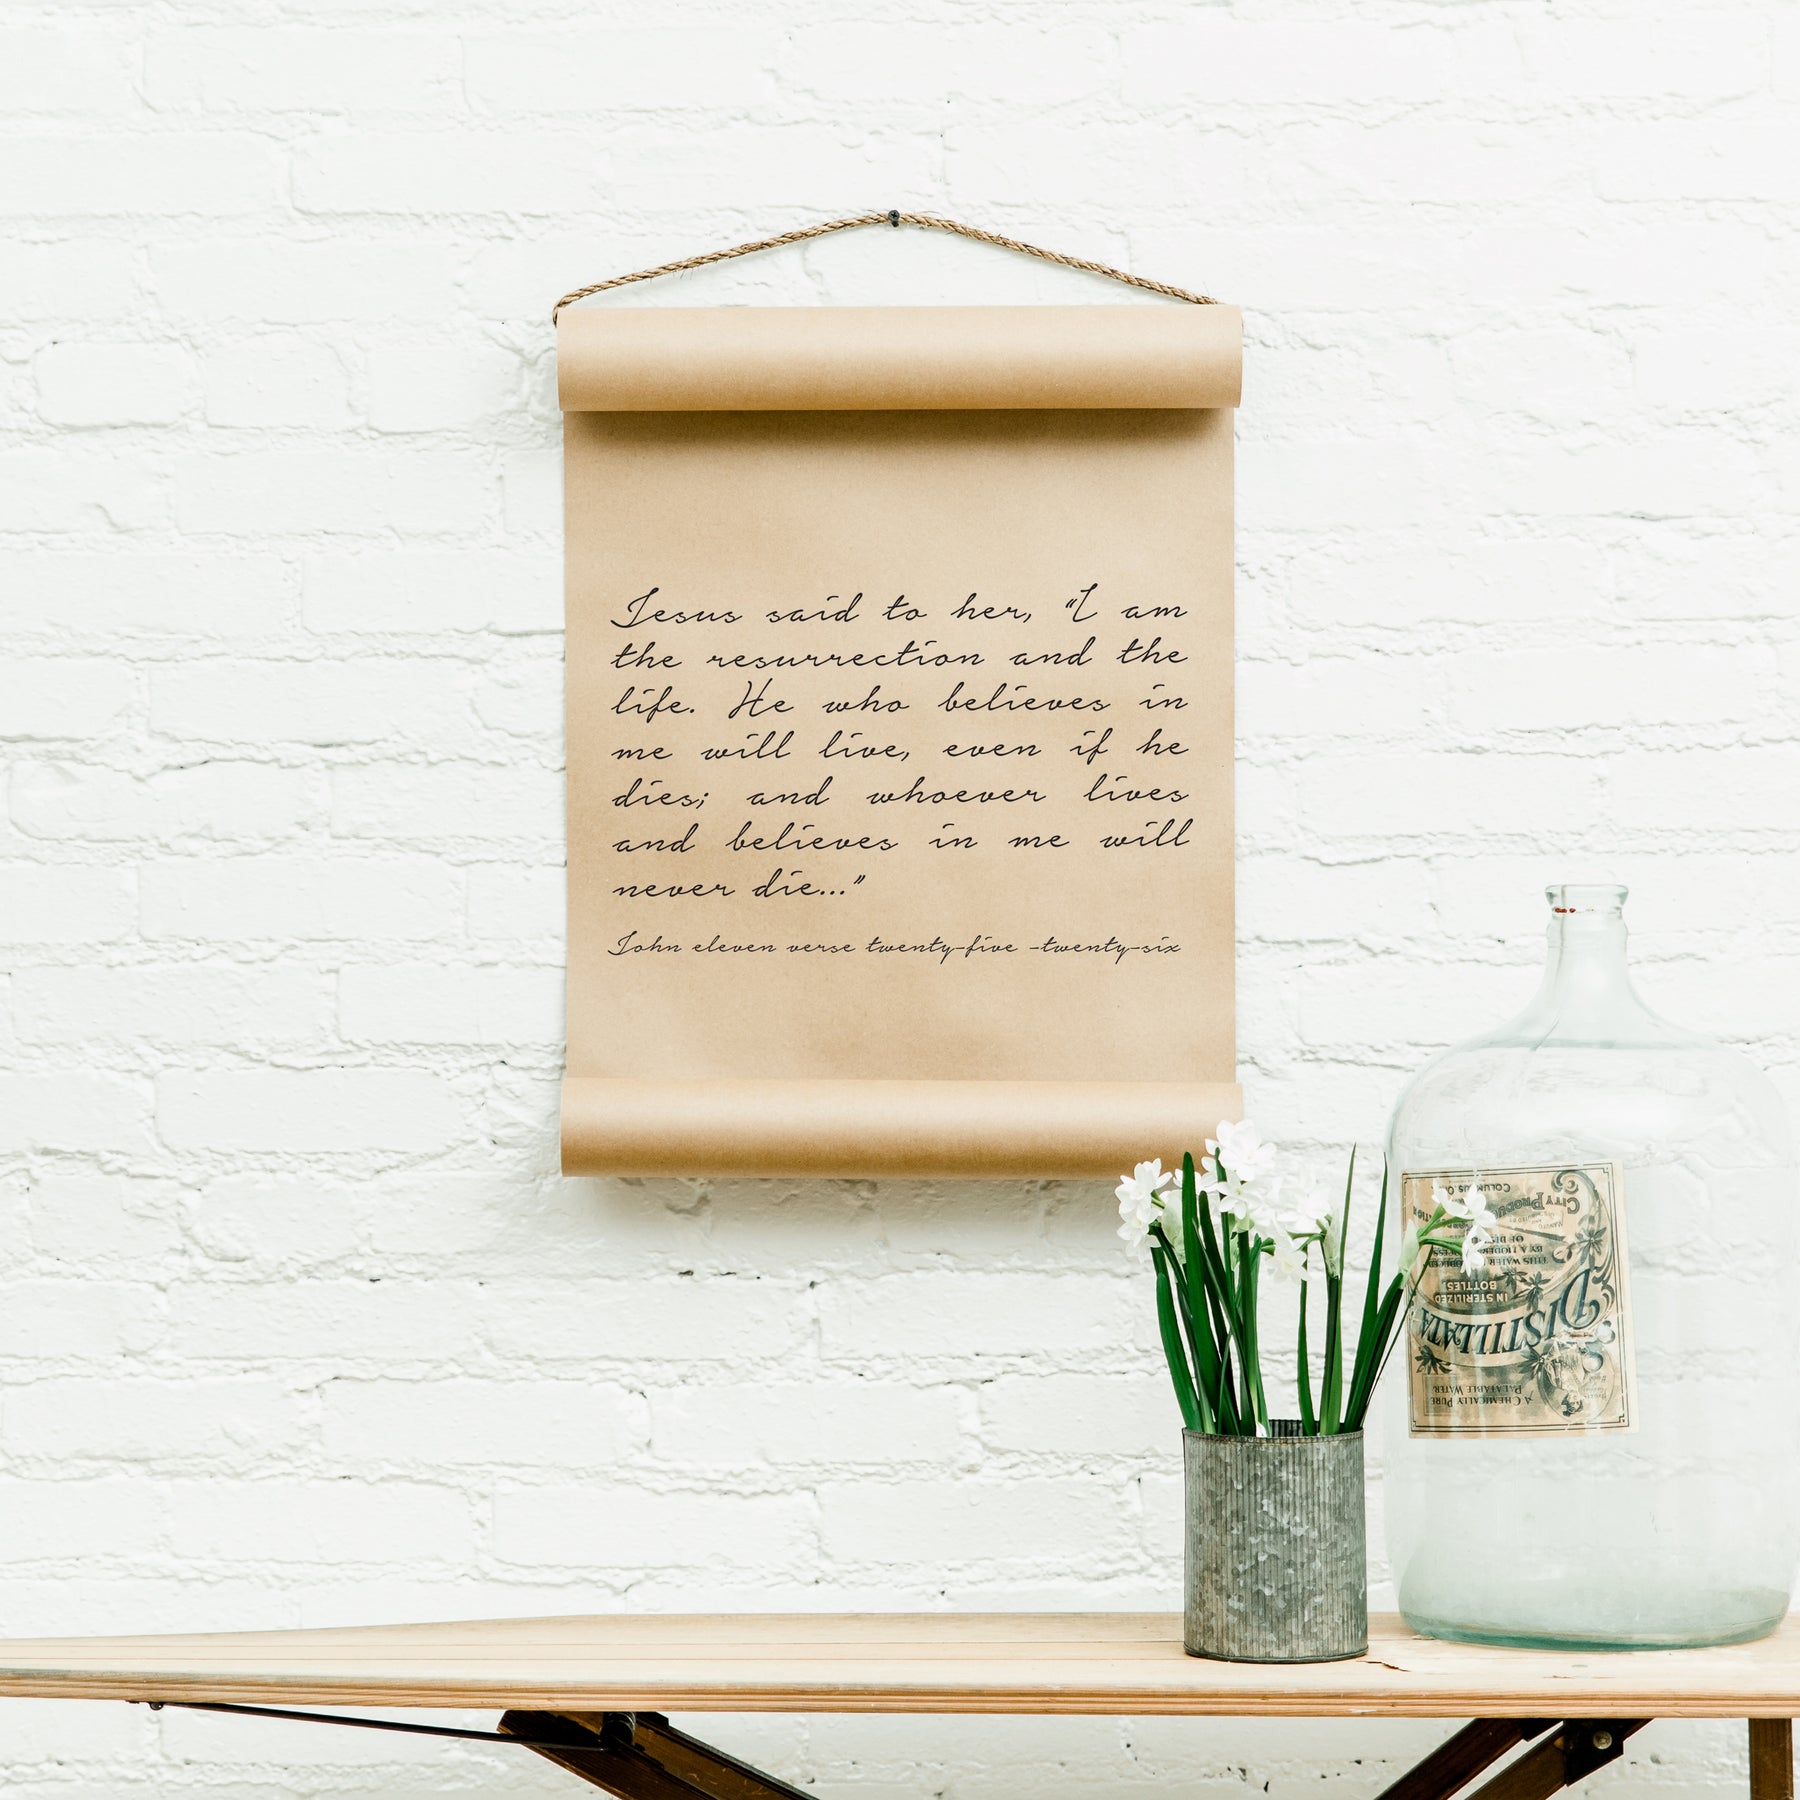 Jesus said to her, "I am
the resurrection and the
life. He who believes in
me will live, even if he
dies; and whoever lives
and believes in me will
never die..."
John eleven verse twenty-five -twenty-six
A CHEMICALLY PURE
PALATABLE WATER
DISTILLATA
IN STERILIZED
BOTTLES
THIS WATER
BY A MODERN
OF
CITY
COLUMBUS O.